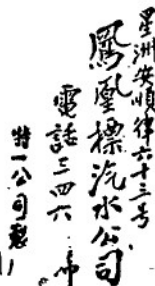 星洲安順律六十三号
鳳凰標汽水公司
電話三四六
特一公司製